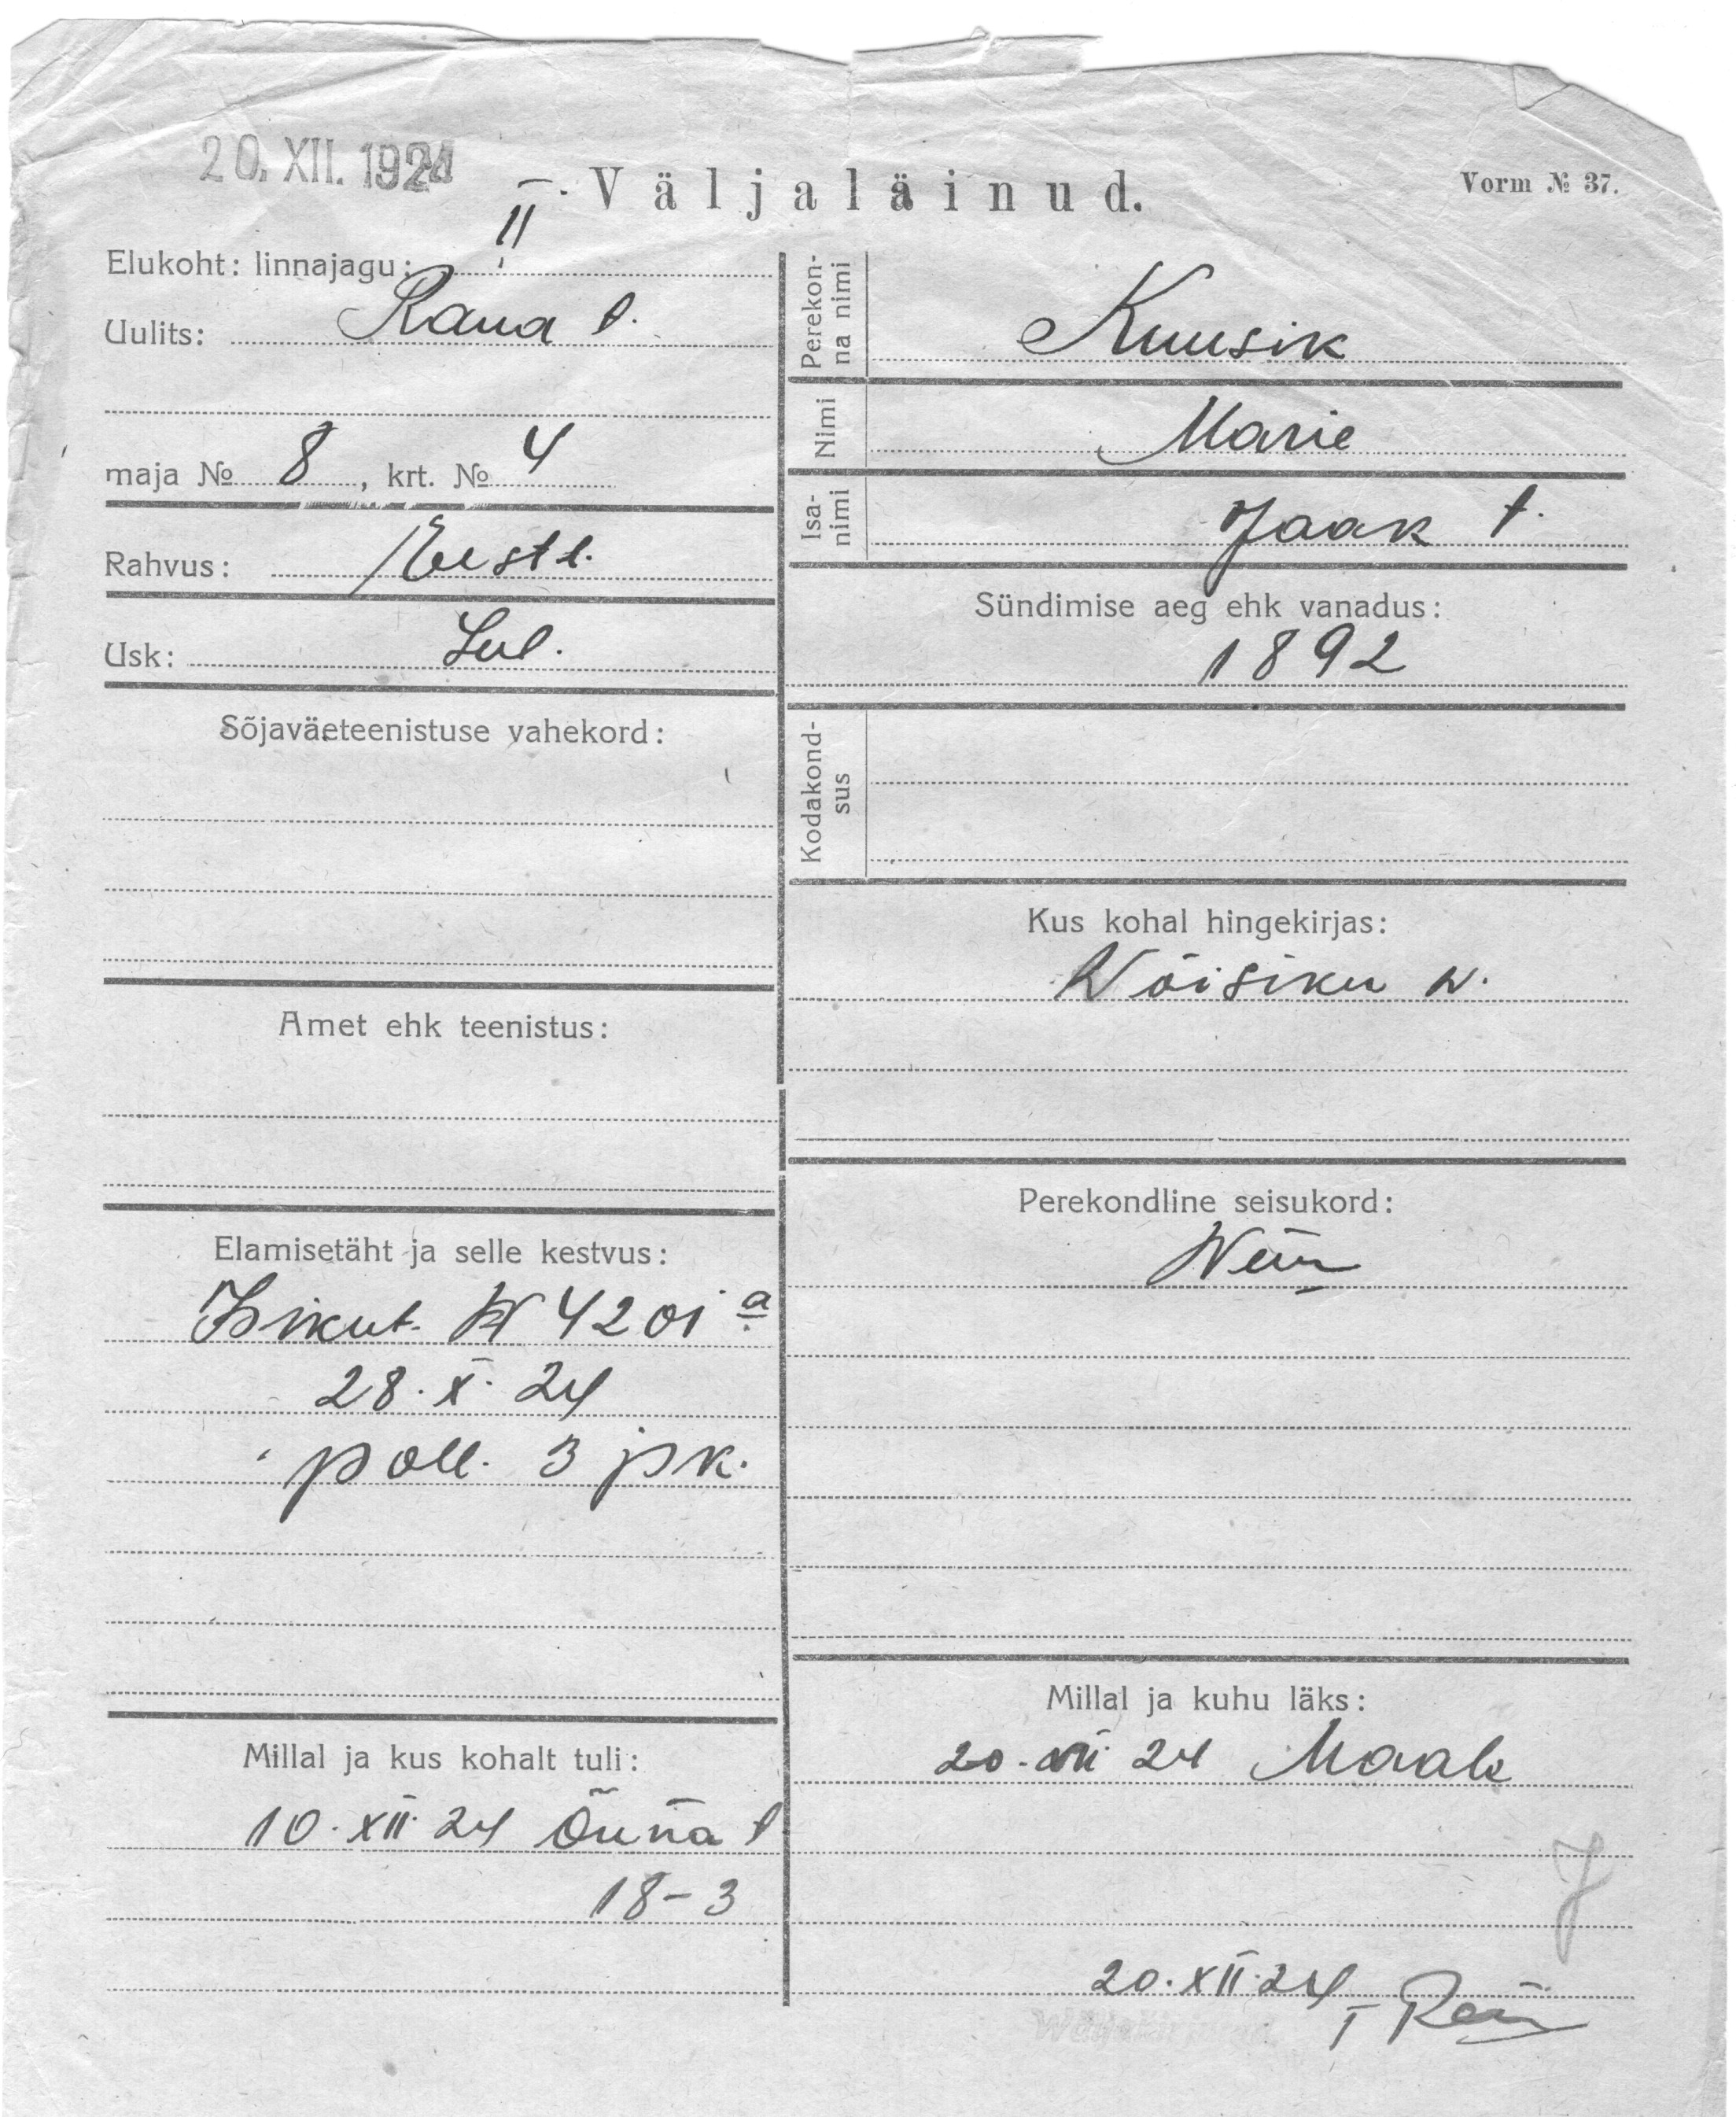 20. XII. 1924
Väljaläinud.
Vorm № 37.
Elukoht: linnajagu: II
Uulits: Raua t.
maja № 8, krt. № 4
Rahvus: Eestl.
Usk: Lut.
Sõjaväeteenistuse vahekord:
Amet ehk teenistus:
Elamisetäht ja selle kestvus:
Isikut. № 4201 a
28. X. 24
poll. 3 jsk.
Millal ja kus kohalt tuli:
10. XII. 24 Õuna t
18-3
Perekon-
na nimi
Kuusik
Nimi Marie
Isa-
nimi
Jaak t.
Sündimise aeg ehk vanadus:
1892
Kodakond-
sus
Kus kohal hingekirjas:
Wõisiku w.
Perekondline seisukord:
Millal ja kuhu läks:
20. XII 24 Maale
20. XII. 24